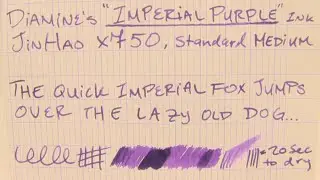 Diamine's "Imperial Purple" Ink
JinHao x750, Standard Medium
The Quick Imperial Fox Jumps
over the lazy old dog...
= 20 sec
to dry